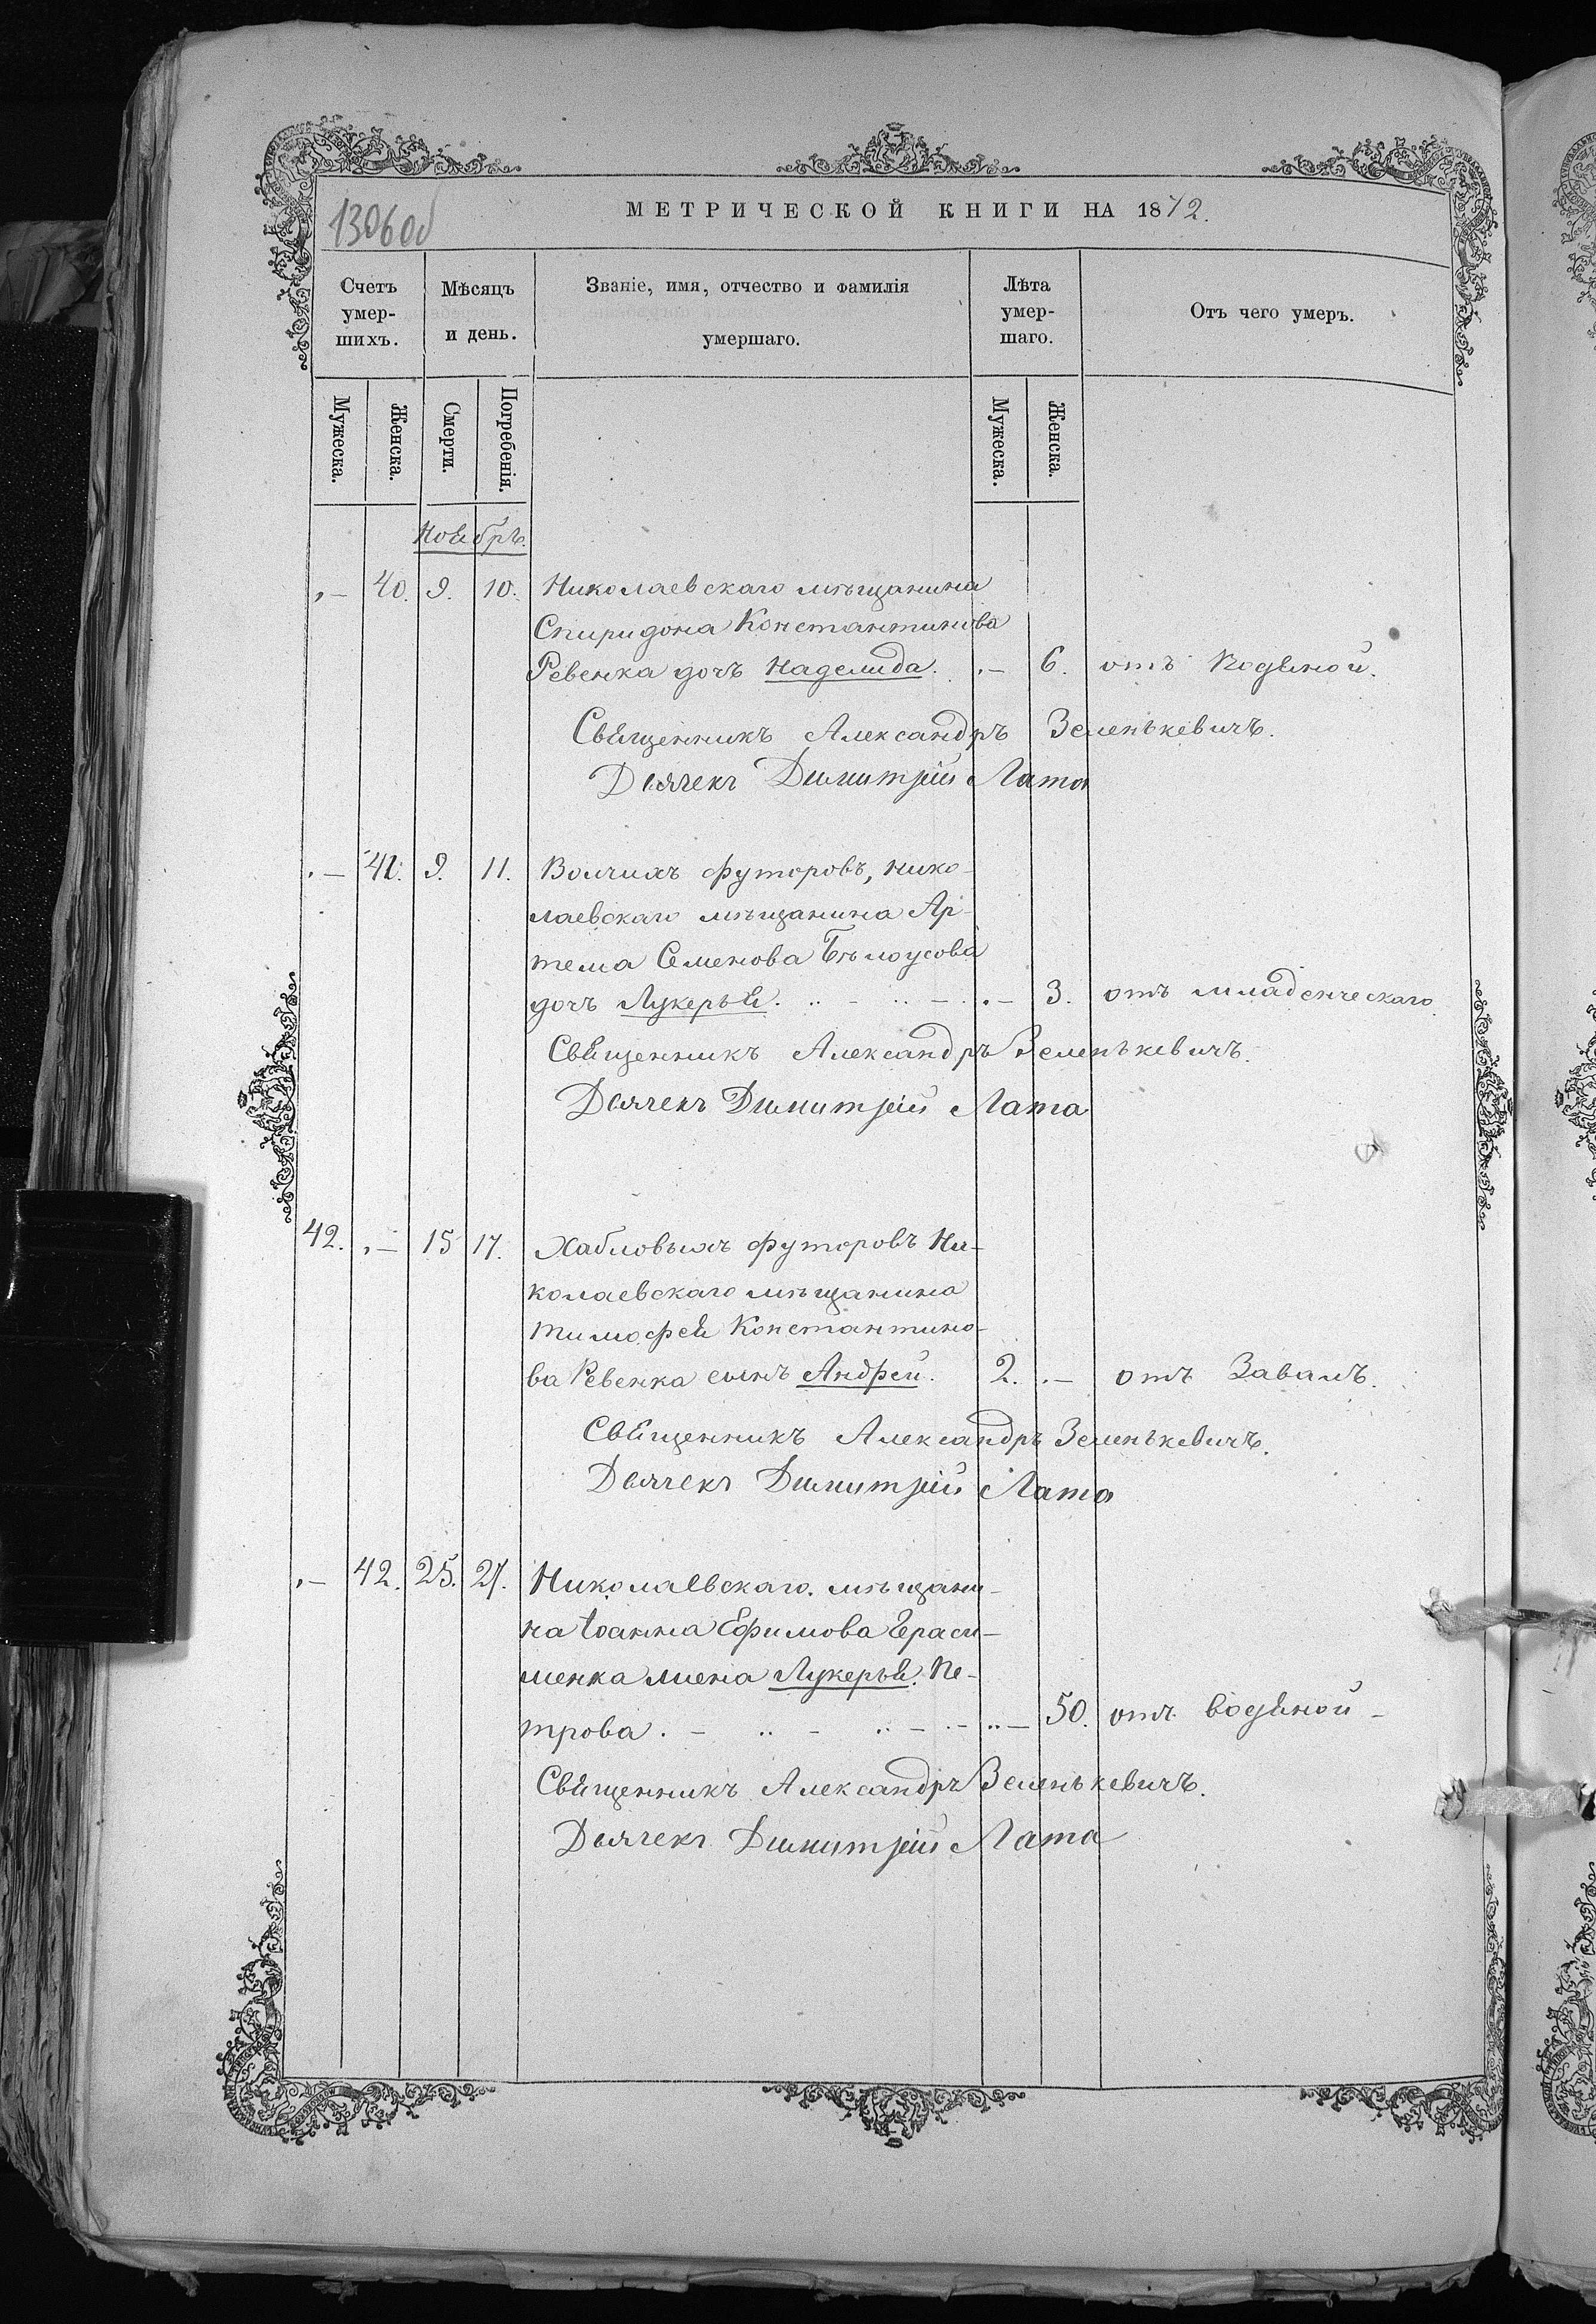 1306 об
МЕТРИЧЕСКОЙ КНИГИ НА 1872.
Счетъ умер-шихъ.
Мѣсяцъ и день.
Званіе, имя, отчество и фамилія умершаго.
Лѣта умер-шаго.
Отъ чего умеръ.
Мужеска.
Женска.
Смерти.
Погребенія.
Мужеска.
Женска.
Ноябрь.
„— 40. 9. 10. Николаевскаго мѣщанина
Спиридона Константинова
Ревенка дочь Надежда. „— 6. отъ водяной.
Священникъ Александръ Зеленькевичъ.
Дьячекъ Димитрій Лата
„— 41. 9. 11. Волчихъ футоровъ, Нико-
лаевскаго мѣщанина Ар-
тема Семенова Бѣлоусова
дочь Лукерья. „ - „ - „— 3. отъ младенческаго.
Священникъ Александръ Зеленькевичъ.
Дьячекъ Димитрій Лата
42. „— 15 17. Хабловыхъ футоровъ Ни-
колаевскаго мѣщанина
Тимофея Константино-
ва Ревенка сынъ Андрей. 2. „— отъ Завалъ.
Священникъ Александръ Зеленькевичъ.
Дьячекъ Димитрій Лата
„— 42. 25. 27. Николаевскаго мѣщани-
на Іоанна Ефимова Гераси-
менка жена Лукерья Пе-
трова. - „ - „ - „— 50. отъ водяной -
Священникъ Александръ Зеленькевичъ.
Дьячекъ Димитрій Лата